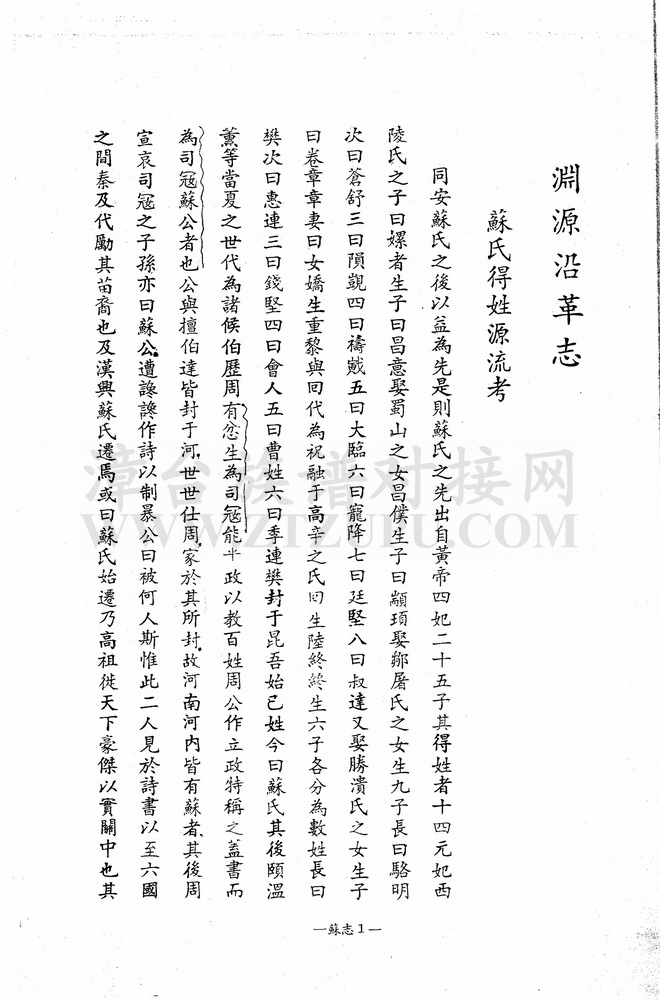 淵源沿革志
蘇氏得姓源流考
同安蘇氏之後以益為先是則蘇氏之先出自黃帝四妃二十五子其得姓者十四元妃西
陵氏之子曰嫘者生子曰昌意娶蜀山之女昌僕生子曰顓頊娶鄒屠氏之女生九子長曰駱明
次曰蒼舒三曰隕觀四曰禱戭五曰大臨六曰寵降七曰廷堅八曰叔達又娶勝潰氏之女生子
曰卷章章妻曰女嬌生重黎與回代為祝融于高辛之氏回生陸終終生六子各分為數姓長曰
樊次曰惠連三曰錢堅四曰會人五曰曹姓六曰季連樊封于昆吾始已姓今曰蘇氏其後頤溫
薰等當夏之世代為諸候伯歷周有忿生為司冦能平政以教百姓周公作立政特稱之蓋書而
為司冦蘇公者也公與檀伯達皆封于河世世仕周家於其所封故河南河內皆有蘇者其後周
宣哀司冦之子孫亦曰蘇公遭讒讒作詩以制暴公曰被何人斯惟此二人見於詩書以至六國
之間秦及代勵其苗裔也及漢興蘇氏遷馬或曰蘇氏始遷乃高祖徙天下豪傑以實關中也其
—蘇志1—
漳台族譜对接网
WWW.ZTZUPU.COM